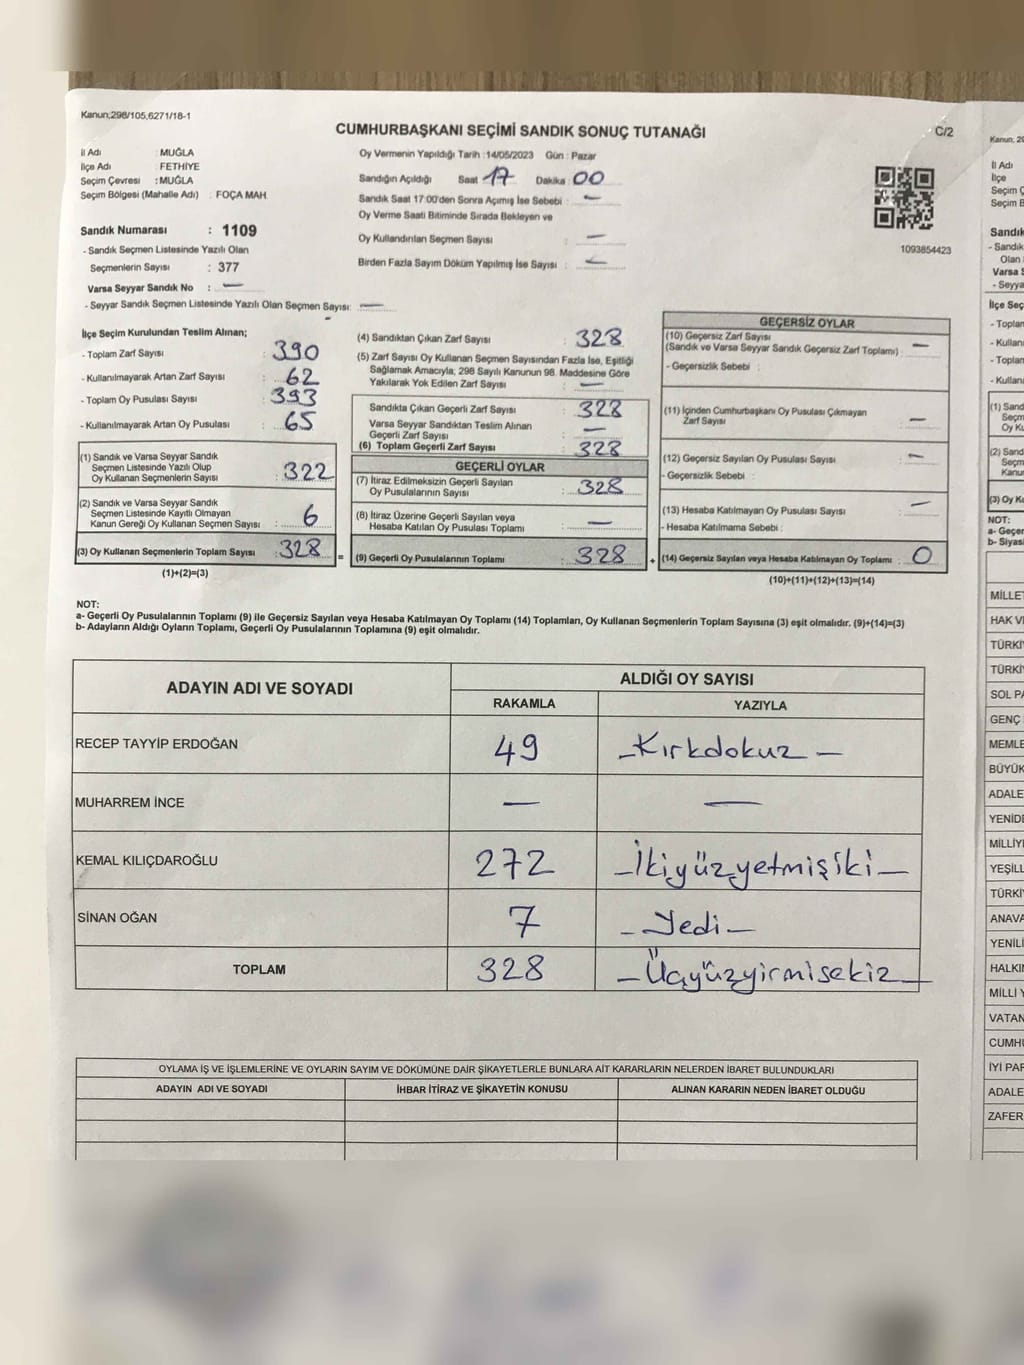 Kanun;298/105,6271/18-1
CUMHURBAŞKANI SEÇİMİ SANDIK SONUÇ TUTANAĞI
C/2
İl Adı : MUĞLA
İlçe Adı FETHİYE
Seçim Çevresi : MUĞLA
Seçim Bölgesi (Mahalle Adı) : FOÇA MAH.
Sandık Numarası : 1109
- Sandık Seçmen Listesinde Yazılı Olan
Seçmenlerin Sayısı : 377
Varsa Seyyar Sandık No : —
- Seyyar Sandık Seçmen Listesinde Yazılı Olan Seçmen Sayısı: —
Oy Vermenin Yapıldığı Tarih :14/05/2023 Gün : Pazar
Sandığın Açıldığı Saat : 17 Dakika : 00
Sandık Saat 17:00'den Sonra Açımış İse Sebebi : —
Oy Verme Saati Bitiminde Sırada Bekleyen ve
Oy Kullandırılan Seçmen Sayısı : —
Birden Fazla Sayım Döküm Yapılmış İse Sayısı : —
1093854423
İlçe Seçim Kurulundan Teslim Alınan;
- Toplam Zarf Sayısı : 390
- Kullanılmayarak Artan Zarf Sayısı : 62
- Toplam Oy Pusulası Sayısı : 393
- Kullanılmayarak Artan Oy Pusulası : 65
(1) Sandık ve Varsa Seyyar Sandık
Seçmen Listesinde Yazılı Olup
Oy Kullanan Seçmenlerin Sayısı : 322
(2) Sandık ve Varsa Seyyar Sandık
Seçmen Listesinde Kayıtlı Olmayan
Kanun Gereği Oy Kullanan Seçmen Sayısı : 6
(3) Oy Kullanan Seçmenlerin Toplam Sayısı : 328
(1)+(2)=(3)
(4) Sandıktan Çıkan Zarf Sayısı : 328
(5) Zarf Sayısı Oy Kullanan Seçmen Sayısından Fazla İse, Eşitliği
Sağlamak Amacıyla; 298 Sayılı Kanunun 98. Maddesine Göre
Yakılarak Yok Edilen Zarf Sayısı : —
Sandıkta Çıkan Geçerli Zarf Sayısı : 328
Varsa Seyyar Sandıktan Teslim Alınan
Geçerli Zarf Sayısı : —
(6) Toplam Geçerli Zarf Sayısı : 328
GEÇERLİ OYLAR
(7) İtiraz Edilmeksizin Geçerli Sayılan
Oy Pusulalarının Sayısı : 328
(8) İtiraz Üzerine Geçerli Sayılan veya
Hesaba Katılan Oy Pusulası Toplamı : —
= (9) Geçerli Oy Pusulalarının Toplamı : 328
GEÇERSİZ OYLAR
(10) Geçersiz Zarf Sayısı
(Sandık ve Varsa Seyyar Sandık Geçersiz Zarf Toplamı) : —
- Geçersizlik Sebebi :
(11) İçinden Cumhurbaşkanı Oy Pusulası Çıkmayan
Zarf Sayısı : —
(12) Geçersiz Sayılan Oy Pusulası Sayısı : —
- Geçersizlik Sebebi :
(13) Hesaba Katılmayan Oy Pusulası Sayısı : —
- Hesaba Katılmama Sebebi :
+ (14) Geçersiz Sayılan veya Hesaba Katılmayan Oy Toplamı : 0
(10)+(11)+(12)+(13)=(14)
NOT:
a- Geçerli Oy Pusulalarının Toplamı (9) ile Geçersiz Sayılan veya Hesaba Katılmayan Oy Toplamı (14) Toplamları, Oy Kullanan Seçmenlerin Toplam Sayısına (3) eşit olmalıdır. (9)+(14)=(3)
b- Adayların Aldığı Oyların Toplamı, Geçerli Oy Pusulalarının Toplamına (9) eşit olmalıdır.
ADAYIN ADI VE SOYADI ALDIĞI OY SAYISI
RAKAMLA YAZIYLA
RECEP TAYYİP ERDOĞAN 49 –Kırkdokuz –
MUHARREM İNCE — —
KEMAL KILIÇDAROĞLU 272 –İkiyüzyetmişiki–
SİNAN OĞAN 7 –Yedi–
TOPLAM 328 –Üçyüzyirmisekiz–
OYLAMA İŞ VE İŞLEMLERİNE VE OYLARIN SAYIM VE DÖKÜMÜNE DAİR ŞİKAYETLERLE BUNLARA AİT KARARLARIN NELERDEN İBARET BULUNDUKLARI
ADAYIN ADI VE SOYADI İHBAR İTİRAZ VE ŞİKAYETİN KONUSU ALINAN KARARIN NEDEN İBARET OLDUĞU
Kanun; 29
İl Adı
İlçe
Seçim Ç
Seçim B
Sandık
- Sandık
Olan
Varsa S
- Seyya
İlçe Seç
- Toplan
- Kullanı
- Toplan
- Kullanı
(1) Sand
Seçm
Oy Ku
(2) Sand
Seçm
Kanu
(3) Oy Ku
NOT:
a- Geçer
b- Siyasi
MİLLET
HAK VE
TÜRKİY
TÜRKİY
SOL PA
GENÇ
MEMLE
BÜYÜK
ADALE
YENİDE
MİLLİYE
YEŞİLL
TÜRKİY
ANAVA
YENİLİ
HALKIN
MİLLİ Y
VATAN
CUMHU
İYİ PAR
ADALE
ZAFER